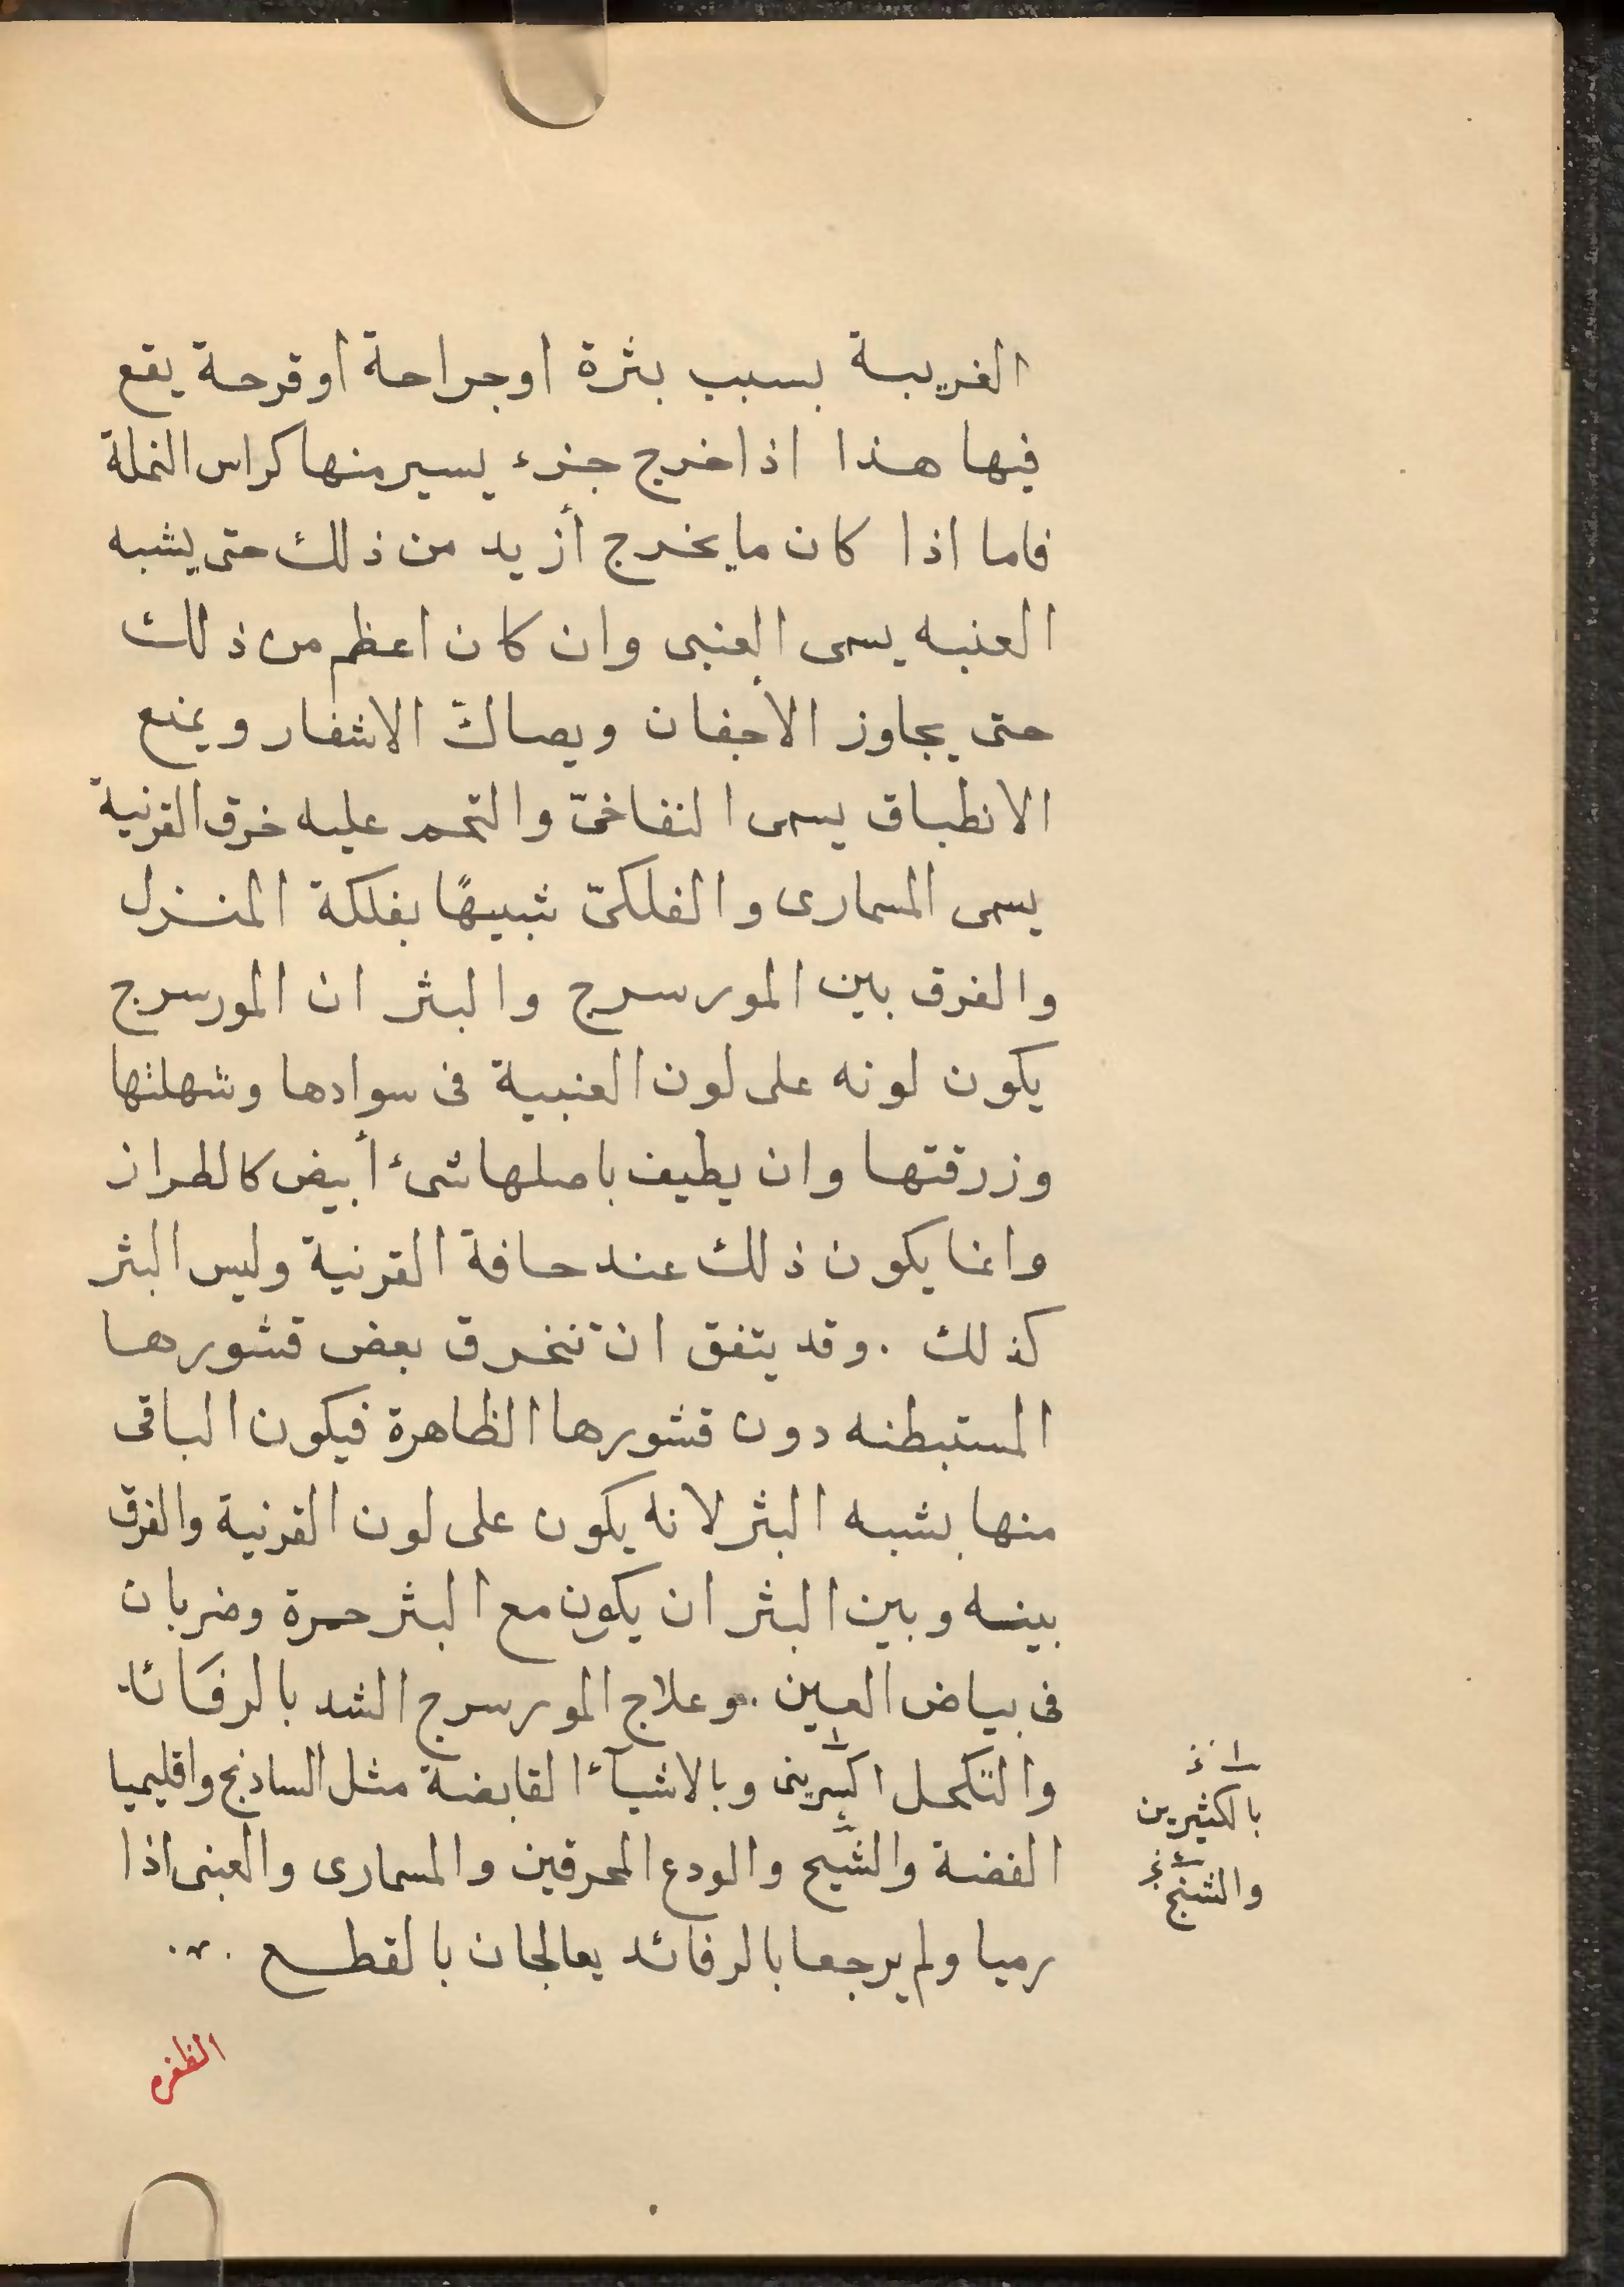 الغريبة بسبب بثرة او جراحة او قرحة يقع
فيها هذا اذا خرج جزء يسير منها كراس النملة
فاما اذا كان ما يخرج أزيد من ذلك حتى يشبه
العنبه يسمى العنبى وان كان اعظم من ذلك
حتى يجاوز الأجفان ويصاكّ الاشفار ويمنع
الانطباق يسمى النفاخىّ والتحمر عليه خرق القرنية
يسمى المسمارى والفلكىّ شبيهًا بفلكة المنزل
والفرق بين المورسرج والبثر ان المورسرج
يكون لونه على لون العنبية فى سوادها وشهلتها
وزرقتها وان يطيف باصلها شىء أبيض كالطراز
وانما يكون ذلك عند حافة القرنية وليس البثر
كذلك . وقد يتفق ان تنخرق بعض قشورها
المستبطنه دون قشورها الظاهرة فيكون الباقى
منها يشبه البثر لانه يكون على لون القرنية والفرق
بينه وبين البثر ان يكون مع البثر حمرة وضربان
فى بياض العين . وعلاج المورسرج الشد بالرفائد
والتكحل وبالاشيآء القابضة مثل الساذنج واقليميا
الفضة والشيح والودع المحرقين والمسمارى والعبنى اذا
رميا ولم يرجعا بالرفائد يعالجان بالقطع
بالكثيرين
والشنج
الظفره